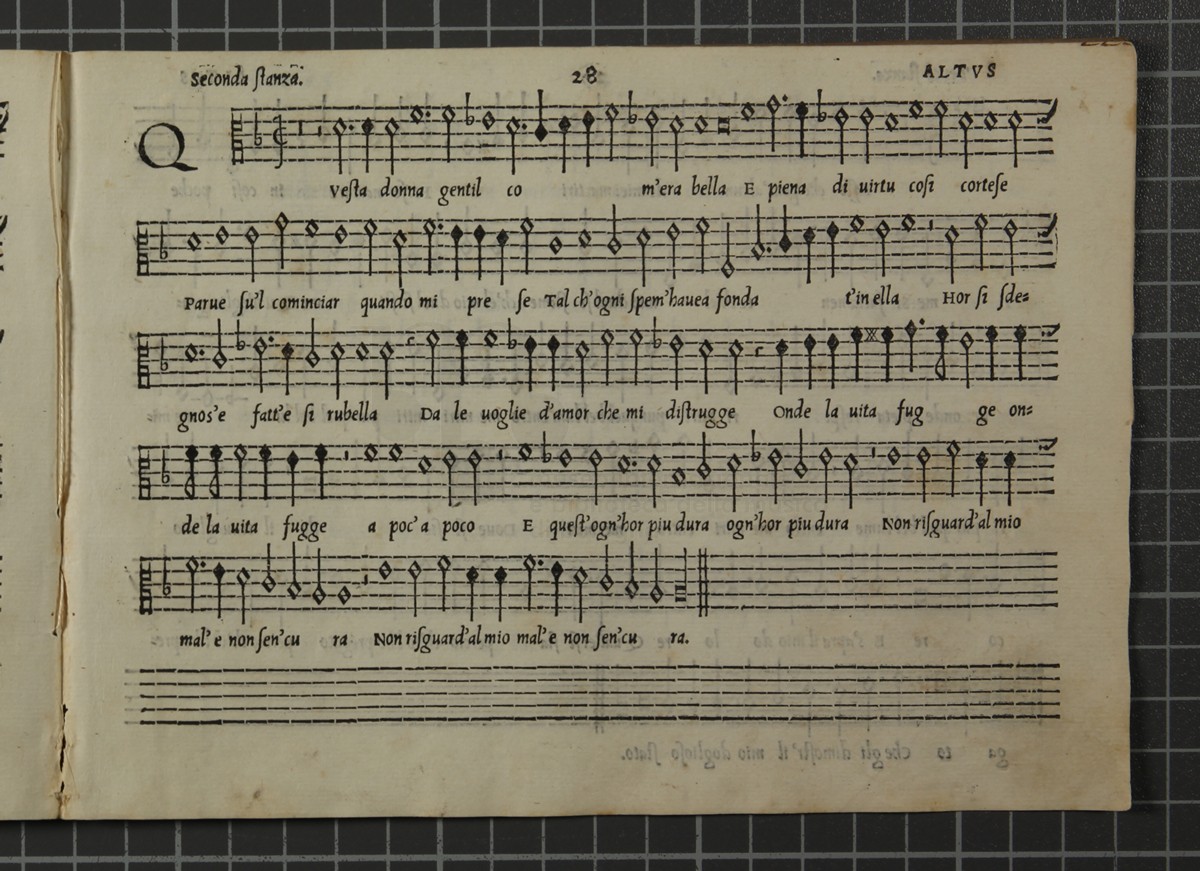 Seconda ſtanza. 28 ALTVS
QVeſta donna gentil co m'era bella E piena di uirtu coſi corteſe
Parue ſu'l cominciar quando mi pre ſe Tal ch'ogni ſpem'hauea fonda t'in ella Hor ſi ſde=
gnos'e fatt'e ſi rubella Da le uoglie d'amor che mi diſtrugge Onde la uita fug ge on=
de la uita fugge a poc'a poco E queſt'ogn'hor piu dura ogn'hor piu dura Non riſguard'al mio
mal' e non ſen'cu ra Non riſguard'al mio mal' e non ſen'cu ra.
ga to che gli dimoſtr'il mio doglioſo ſtato.